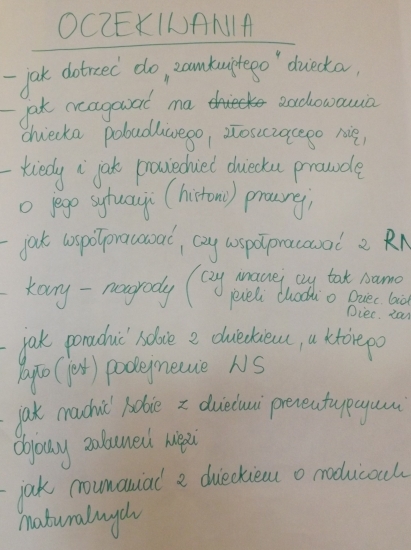 OCZEKIWANIA
- jak dotrzeć do "zamkniętego" dziecka,
- jak reagować na dziecko zachowania
dziecka pobudliwego, złoszczącego się,
- kiedy i jak powiedzieć dziecku prawdę
o jego sytuacji (historii) prawnej,
- jak współpracować, czy współpracować z RN
- kary - nagrody (czy inaczej czy tak samo
jeżeli chodzi o Dziec.
Dziec.
- jak poradzić sobie z dzieckiem, u którego
było (jest) podejrzenie WS
- jak radzić sobie z dziećmi prezentującymi
objawy zaburzeń więzi
- jak rozmawiać z dzieckiem o rodzicach
naturalnych